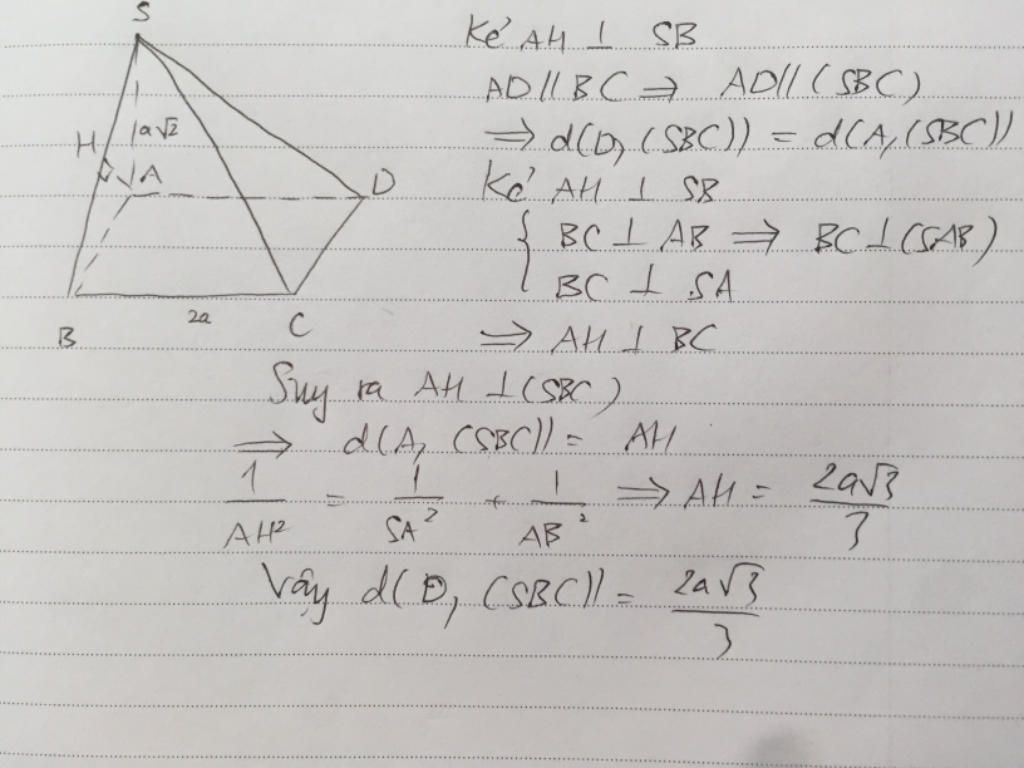 S
Kẻ AH ⊥ SB
AD // BC ⇒ AD // (SBC)
a√2
H
⇒ d(D, (SBC)) = d(A, (SBC))
A
D
Kẻ AH ⊥ SB
{ BC ⊥ AB ⇒ BC ⊥ (SAB)
BC ⊥ SA
B
2a
C
⇒ AH ⊥ BC
Suy ra AH ⊥ (SBC)
⇒ d(A, (SBC)) = AH
1/AH² = 1/SA² + 1/AB² ⇒ AH = 2a√3/3
Vậy d(D, (SBC)) = 2a√3/3